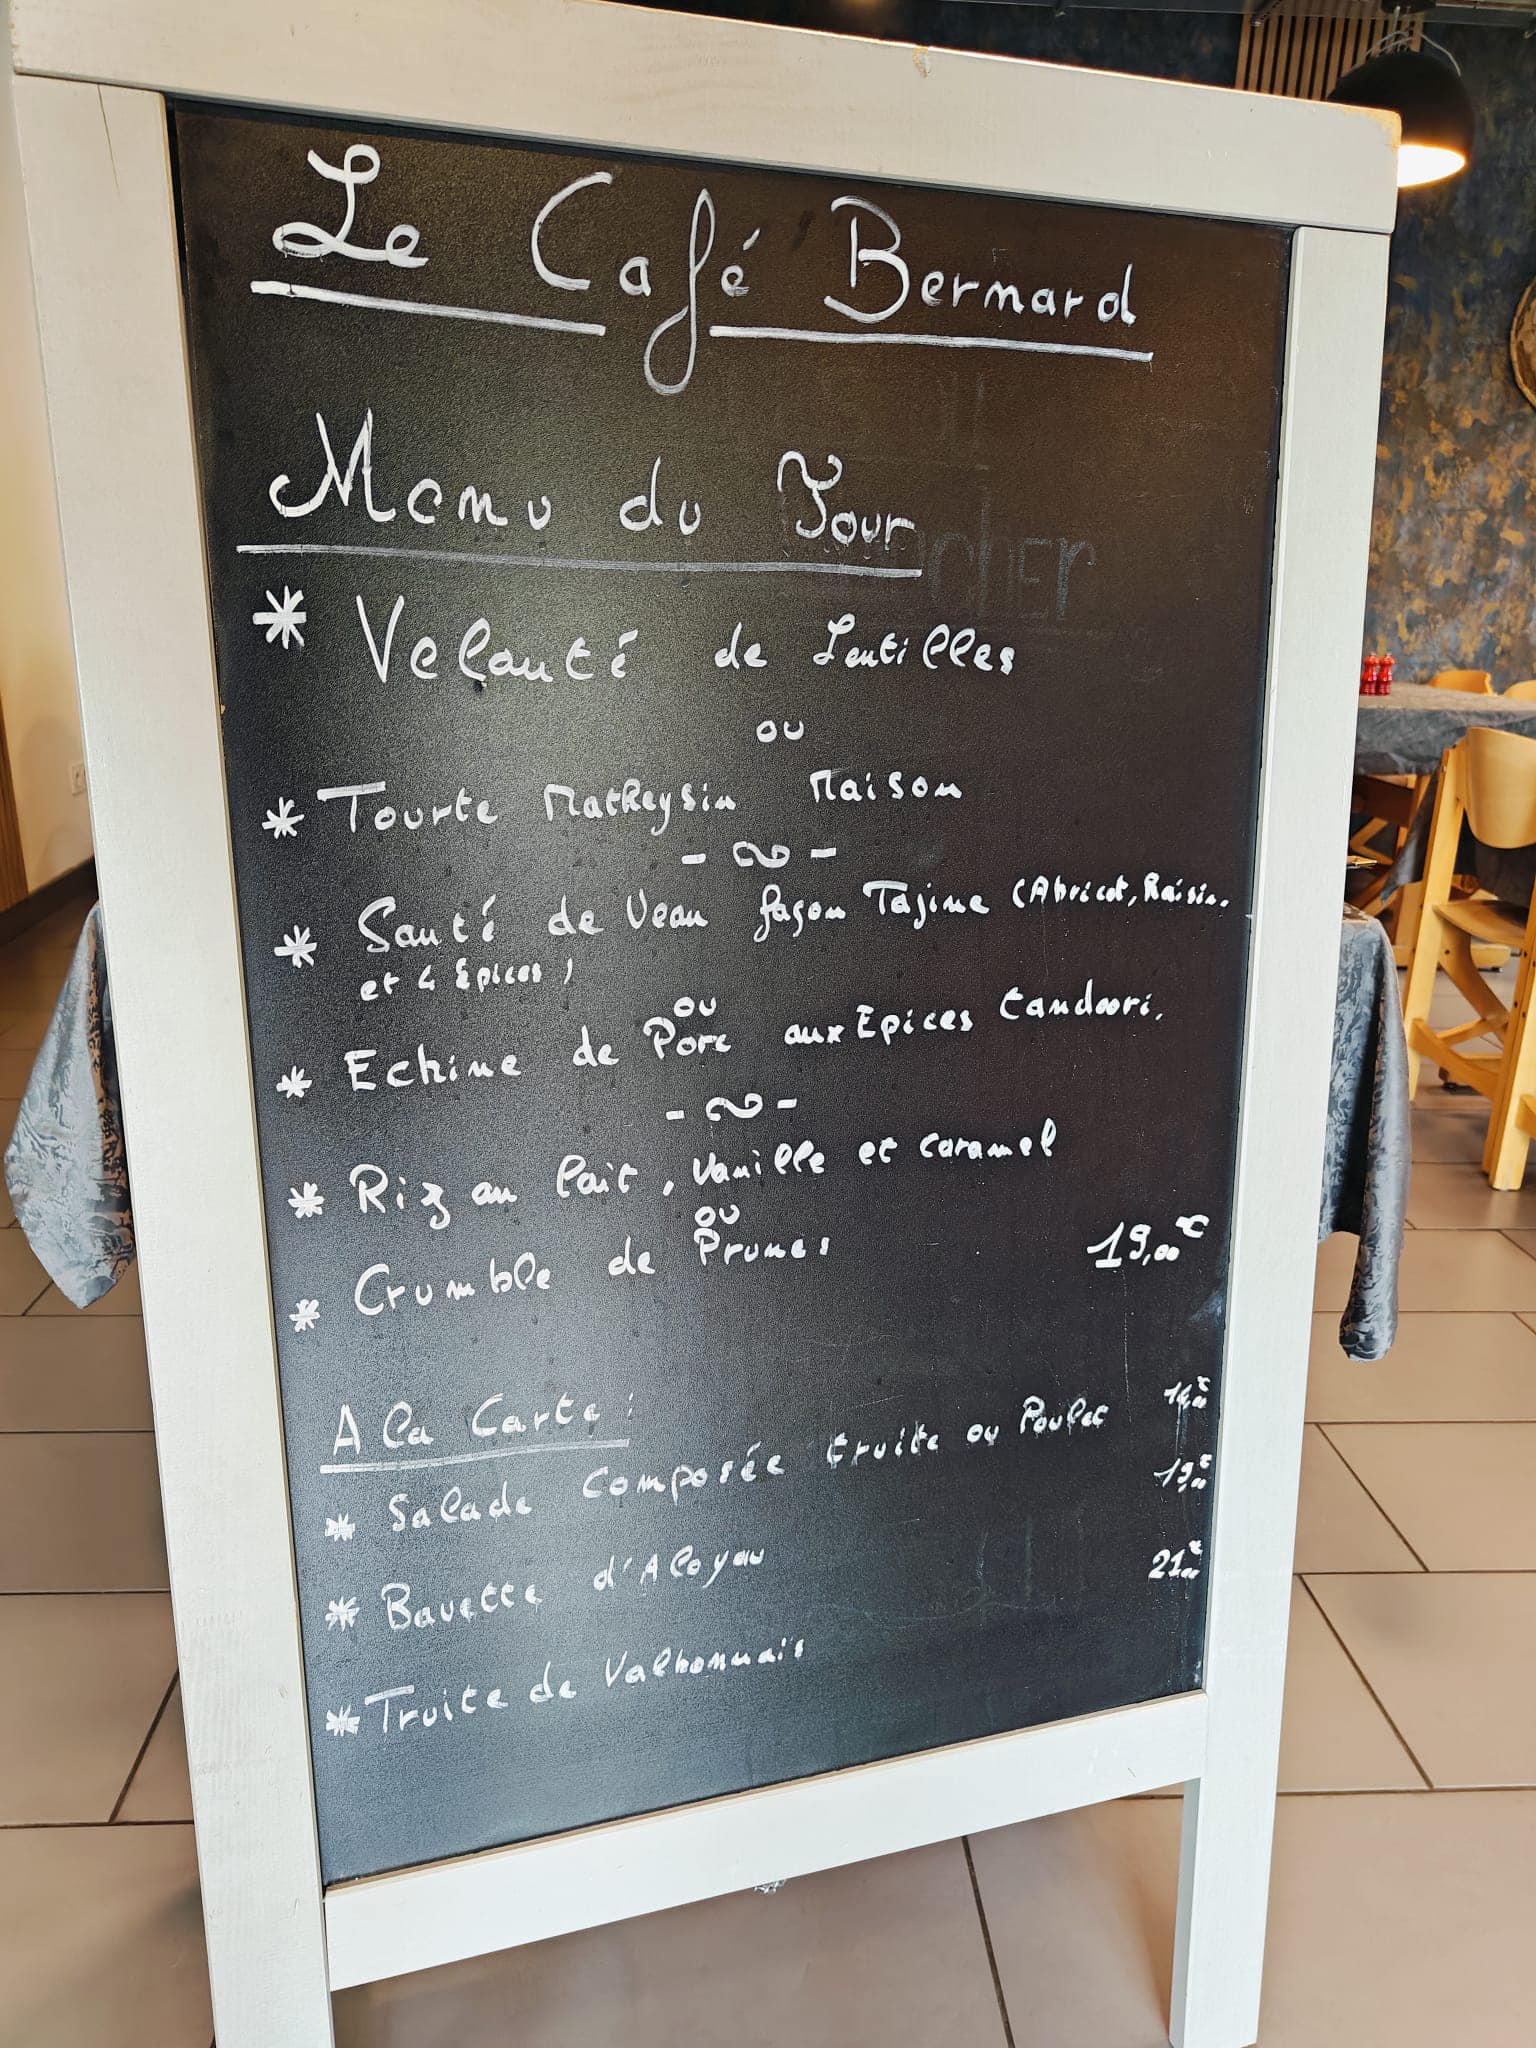 Le Café Bernard
Menu du Jour
* Velouté de Lentilles
ou
* Tourte Matheysin Maison
- ~ -
* Sauté de Veau façon Tajine (Abricot, Raisin.
et 4 Epices)
ou
* Echine de Porc aux Epices tandoori.
- ~ -
* Riz au lait, vanille et caramel
ou
* Crumble de Prunes 19,00€
A la Carte:
* Salade Composée truite ou Poulet
* Bavette d'Aloyau 19,00€
* Truite de Valbonnais 21,00€